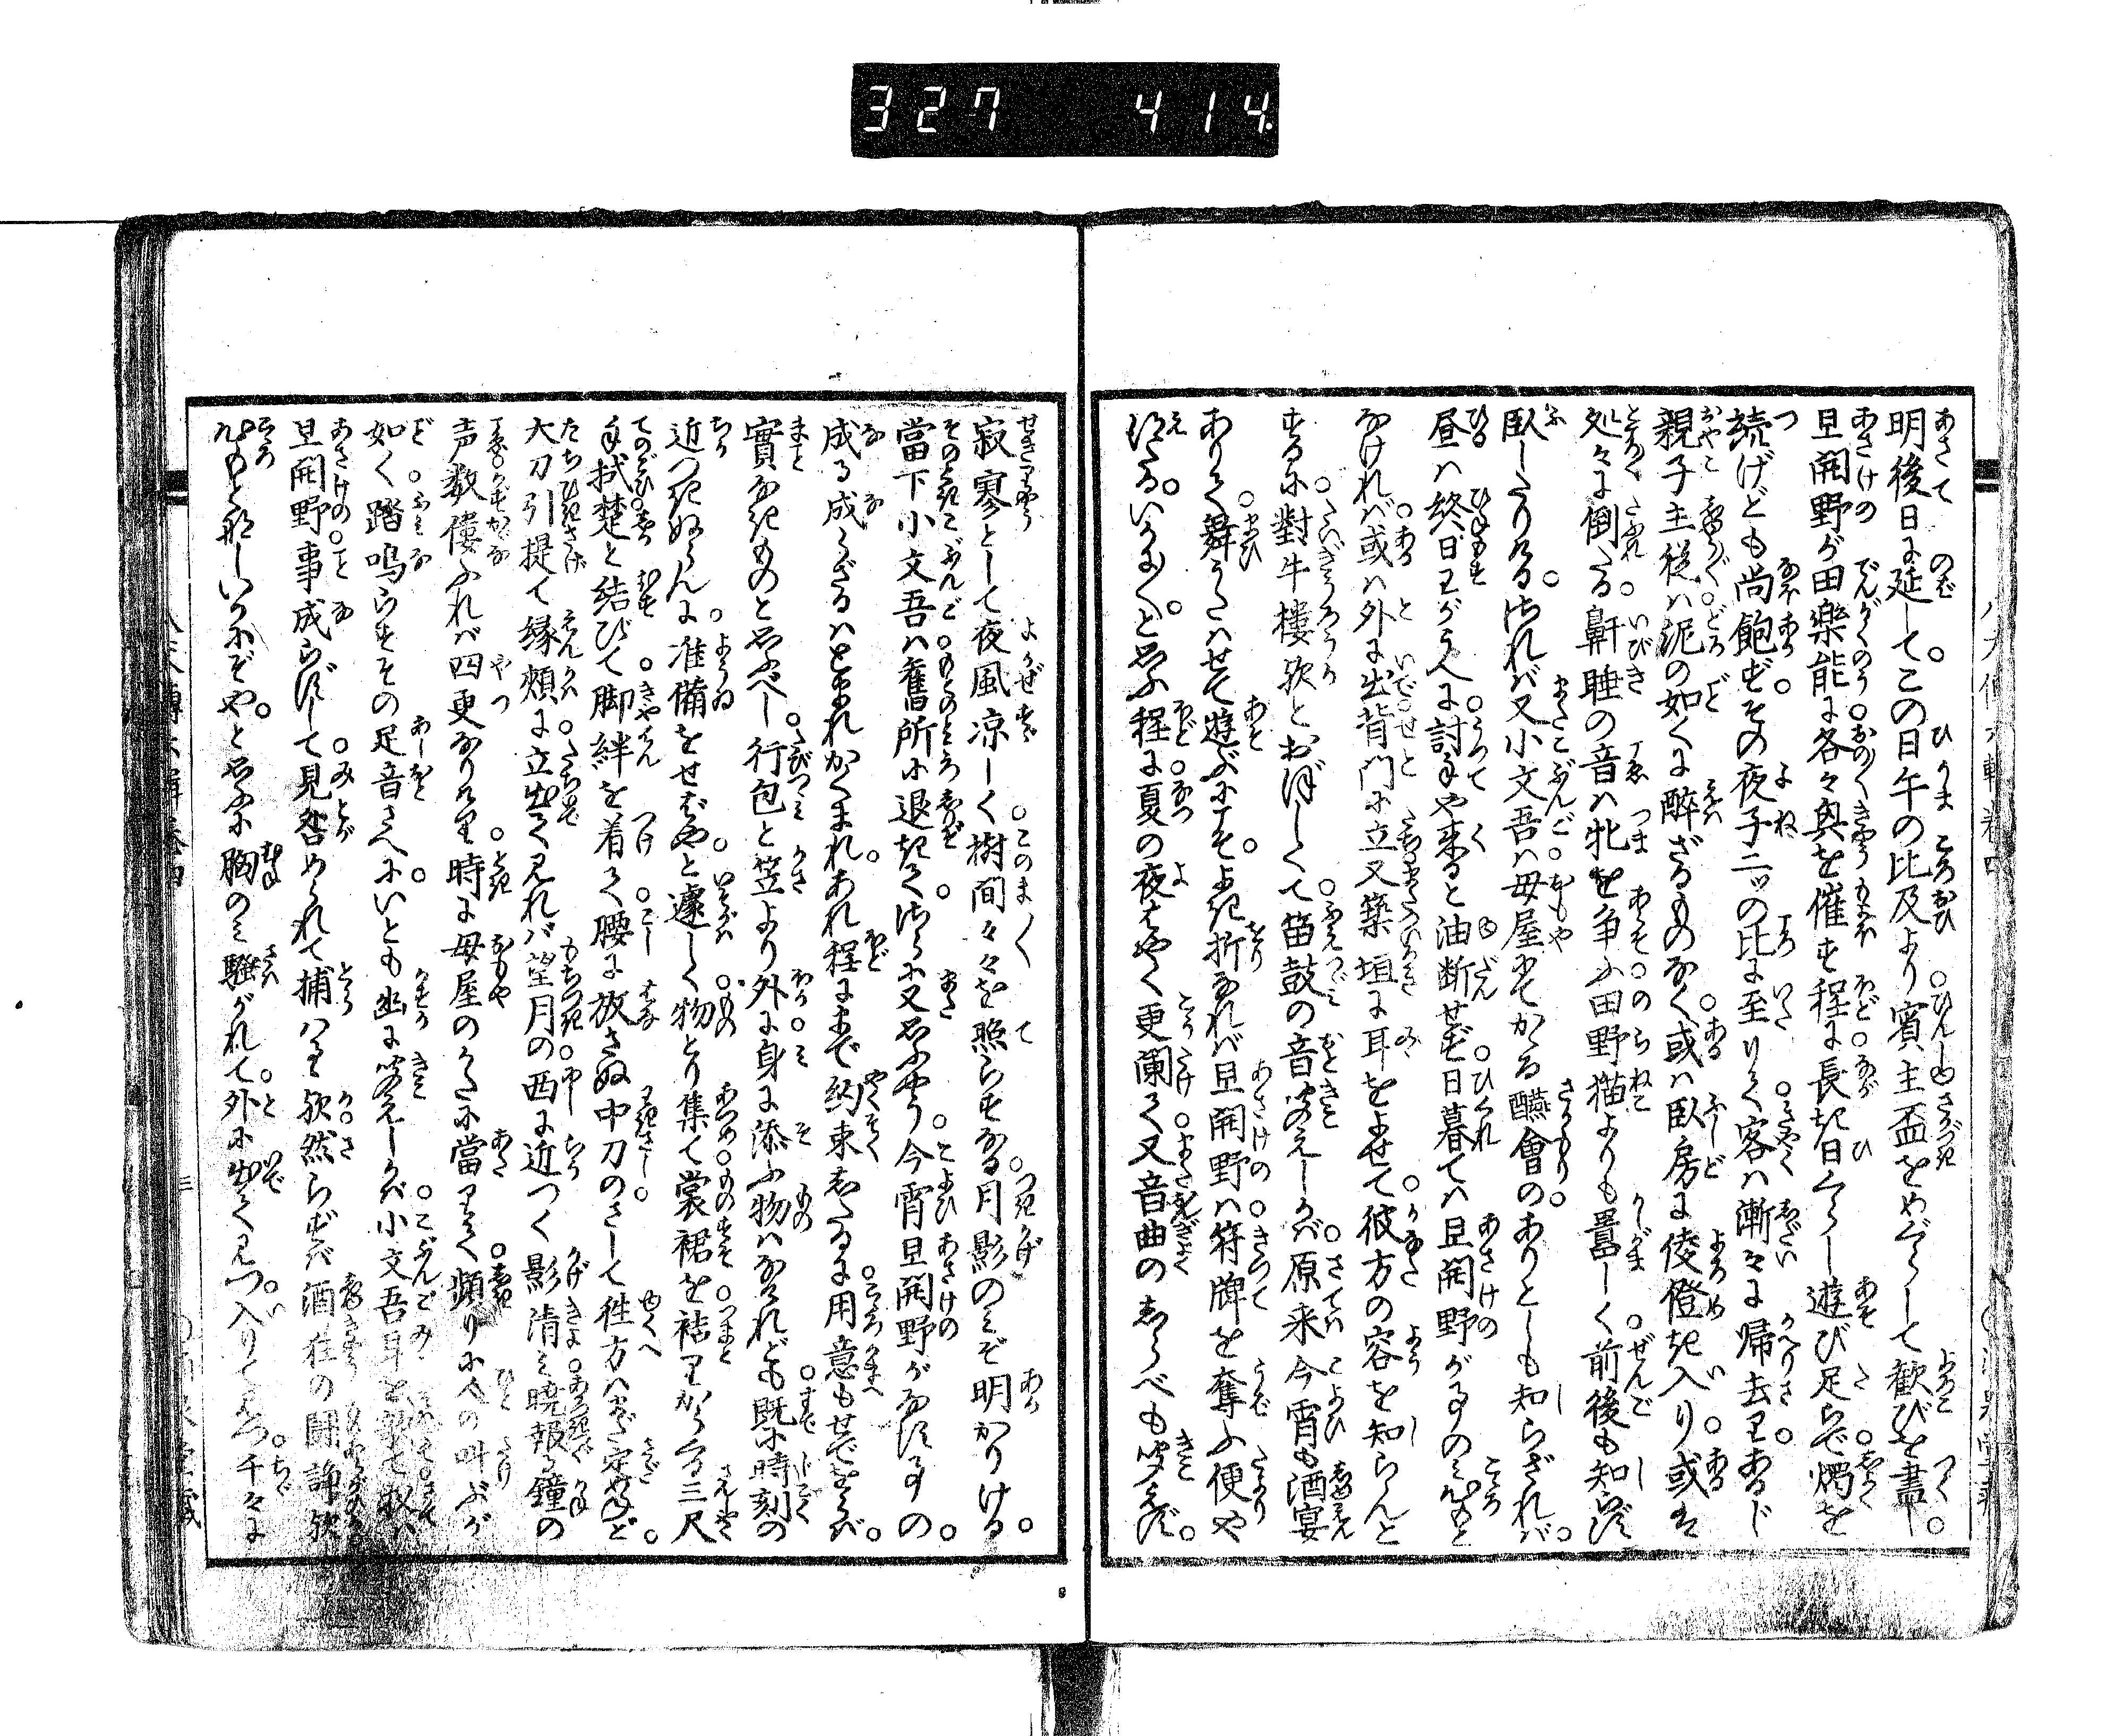 327 414
明後日に延してこの日午の比及より賓主盃をめぐらして歓びを盡し。
旦開野が田樂能に各々興を催す程に長き日くらし遊び足らで燭を
続げども尚飽ず。その夜子二ツの比に至りて客は漸々に帰去りあるじ
親子主従は泥の如くに醉ざるものなく或は臥房に倭燈き入り或は
処々に倒れる鼾睡の音は牝を争ふ田野猫よりも囂しく前後も知らず
臥したりける。されば又小文吾は母屋にてかゝる醼會のありとしも知らざれば。
昼は終日王がうへに討手や来ると油断せず日暮ては旦開野が事のみ心もと
なければ或は外に出背門に立又築垣に耳をよせて彼方の容を知らんと
するに對牛樓歟とおぼしくて笛鼓の音聞えしかば原来今宵も酒宴
ありて舞うたはせて遊ぶにこそ。よき折なれば旦開野は符牌を奪ふ便や
得たる。いかに〳〵。と思ふ程に夏の夜はやく更闌て又音曲のしらべも聞えず。
寂寥として夜風凉しく樹間々々を照らすなる月影のみぞ明かりける。
當下小文吾は舊所に退きて。つら〳〵又思ふやう今宵旦開野がなす事の
成る成らざるはとまれかくまれ。あれ程にまで約束したるに用意もせでをらば。
實なきものと思ふべし。行包と笠より外に身に添ふ物はなけれども既に時刻の
近つきぬらんに准備をせばやと遽しく物とり集て裳裾を袺りからげ三尺
手拭楚と結びて脚絆を着て腰に放さぬ中刀のさして徃方はまだ定めねど。
大刀引提て縁頬に立出て見れば望月の西に近つく影清み曉報る鐘の
声数僂ふれば四更なりけり。時に母屋のかたに當りて頻りに人の叫ぶが
如く踏鳴らすその足音さへに。いとも幽に聞えしかば小文吾耳を
旦開野事成らずして見咎められて捕はる歟然らずば酒狂の闘諍歟
心もとなしいかにぞや。と思ふに胸のみ騒がれて外に出て見つ。入りて見つ千々に